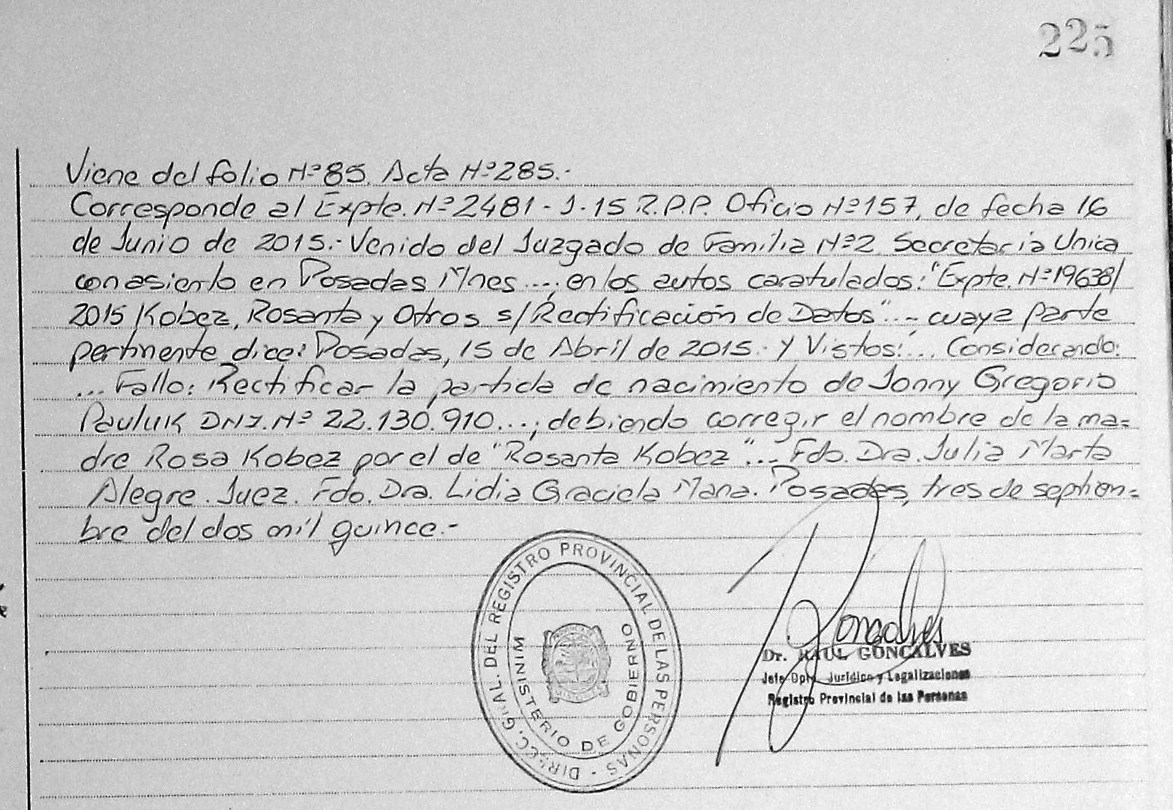 225
Viene del folio Nº 85. Acta Nº 285.-
Corresponde al Expte. Nº 2481 - J - 15 R.P.P. Oficio Nº 157, de fecha 16
de Junio de 2015.- Venido del Juzgado de Familia Nº 2 Secretaria Unica
con asiento en Posadas Mnes ...; en los autos caratulados: "Expte. Nº 19638/
2015 Kobez, Rosanta y Otros s/Rectificación de Datos" ... cuaya parte
pertinente dice: Posadas, 15 de Abril de 2015.- Y Vistos: ... Considerando:
... Fallo: Rectificar la partida de nacimiento de Jonny Gregorio
Pauluk DNI. Nº 22.130.910 ...; debiendo corregir el nombre de la ma=
dre Rosa Kobez por el de "Rosanta Kobez" ... Fdo. Dra. Julia Marta
Alegre. Juez. Fdo. Dra. Lidia Graciela Mana. Posadas, tres de septiem=
bre del dos mil quince.-
DIRECC. GRAL. DEL REGISTRO PROVINCIAL DE LAS PERSONAS -
MINISTERIO DE GOBIERNO
Goncalves
Dr. RAUL GONCALVES
Jefe Dpto. Jurídico y Legalizaciones
Registro Provincial de las Personas